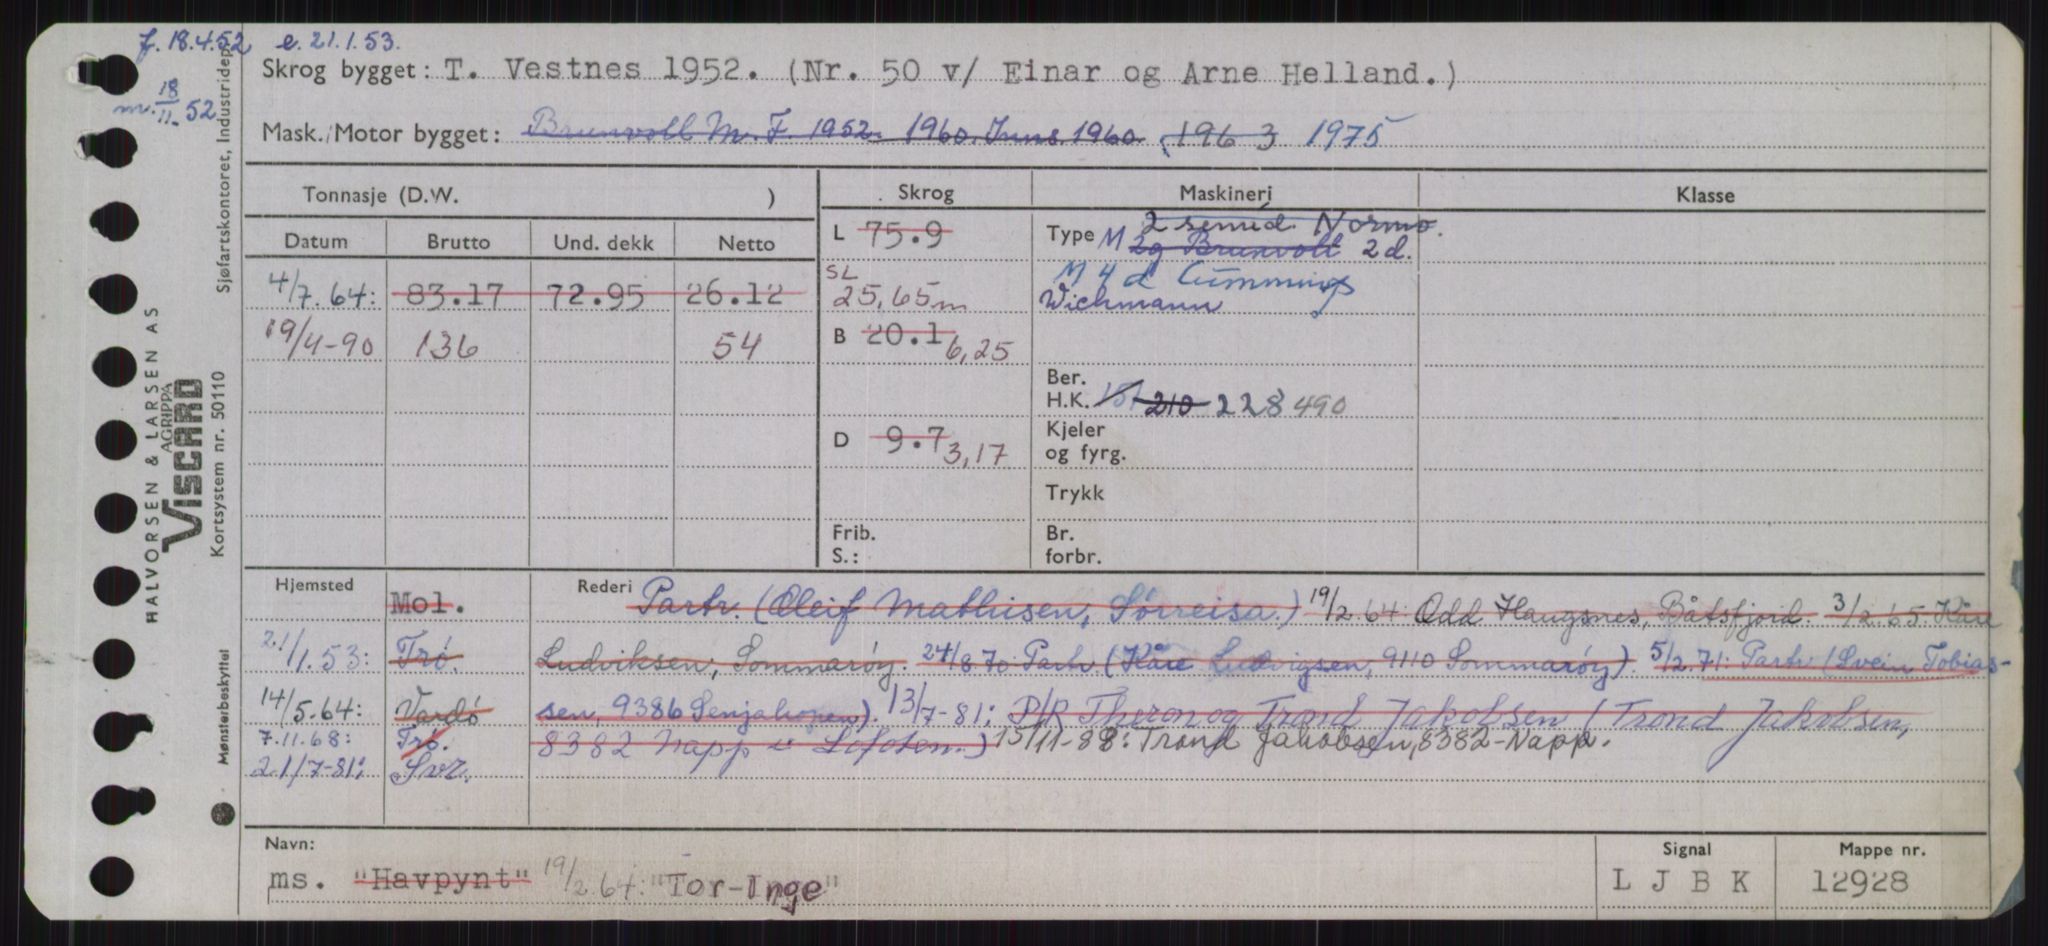 f. 18.4.52 e. 21.1.53.
mv. 18/11-52
Skrog bygget: T. Vestnes 1952. (Nr. 50 v/ Einar og Arne Helland.)
Mask./Motor bygget: Brunvoll M.F. 1952. 1960. 1960. 1963 1975
Tonnasje (D.W. )
Skrog
Maskineri
Klasse
Datum Brutto Und. dekk Netto
L 75.9
Type M 2 semid. Normo.
2g Brunvoll 2 d.
4/7.64: 83.17 72.95 26.12
SL 25,65m
M 4 d Cummings
Wichmann
19/4-90 136 54
B 20.1 6,25
Ber. H.K. 151 210 228 490
D 9.7 3,17
Kjeler og fyrg.
Trykk
Frib.
S.:
Br. forbr.
Hjemsted
Mol.
21/1.53: Trö.
14/5.64: Vardö
7.11.68: Trö.
21/7-81: Svr.
Rederi Partr. (Oleif Mathisen, Sörreisa.) 19/2.64: Odd Haugsnes, Båtsfjord. 3/2.65. Kåre
Ludviksen, Sommaröy. 24/8.70: Partr (Kåre Ludvigsen, 9110 Sommaröy). 5/2.71: Partr (Svein Tobias-
sen, 9386 Senjahopen). 13/7-81: P/R Theron og Trond Jakobsen (Trond Jakobsen,
8382 Napp i Lofoten.) 15/11-88: Trond Jakobsen, 8382-Napp.
Navn:
ms. "Havpynt" 19/2.64: "Tor-Inge"
Signal
L J B K
Mappe nr.
12928
HALVORSEN & LARSEN AS
AGRIPPA
VISCARD
Kortsystem nr. 50110
Sjøfartskontoret, Industridep.
Mønsterbeskyttet